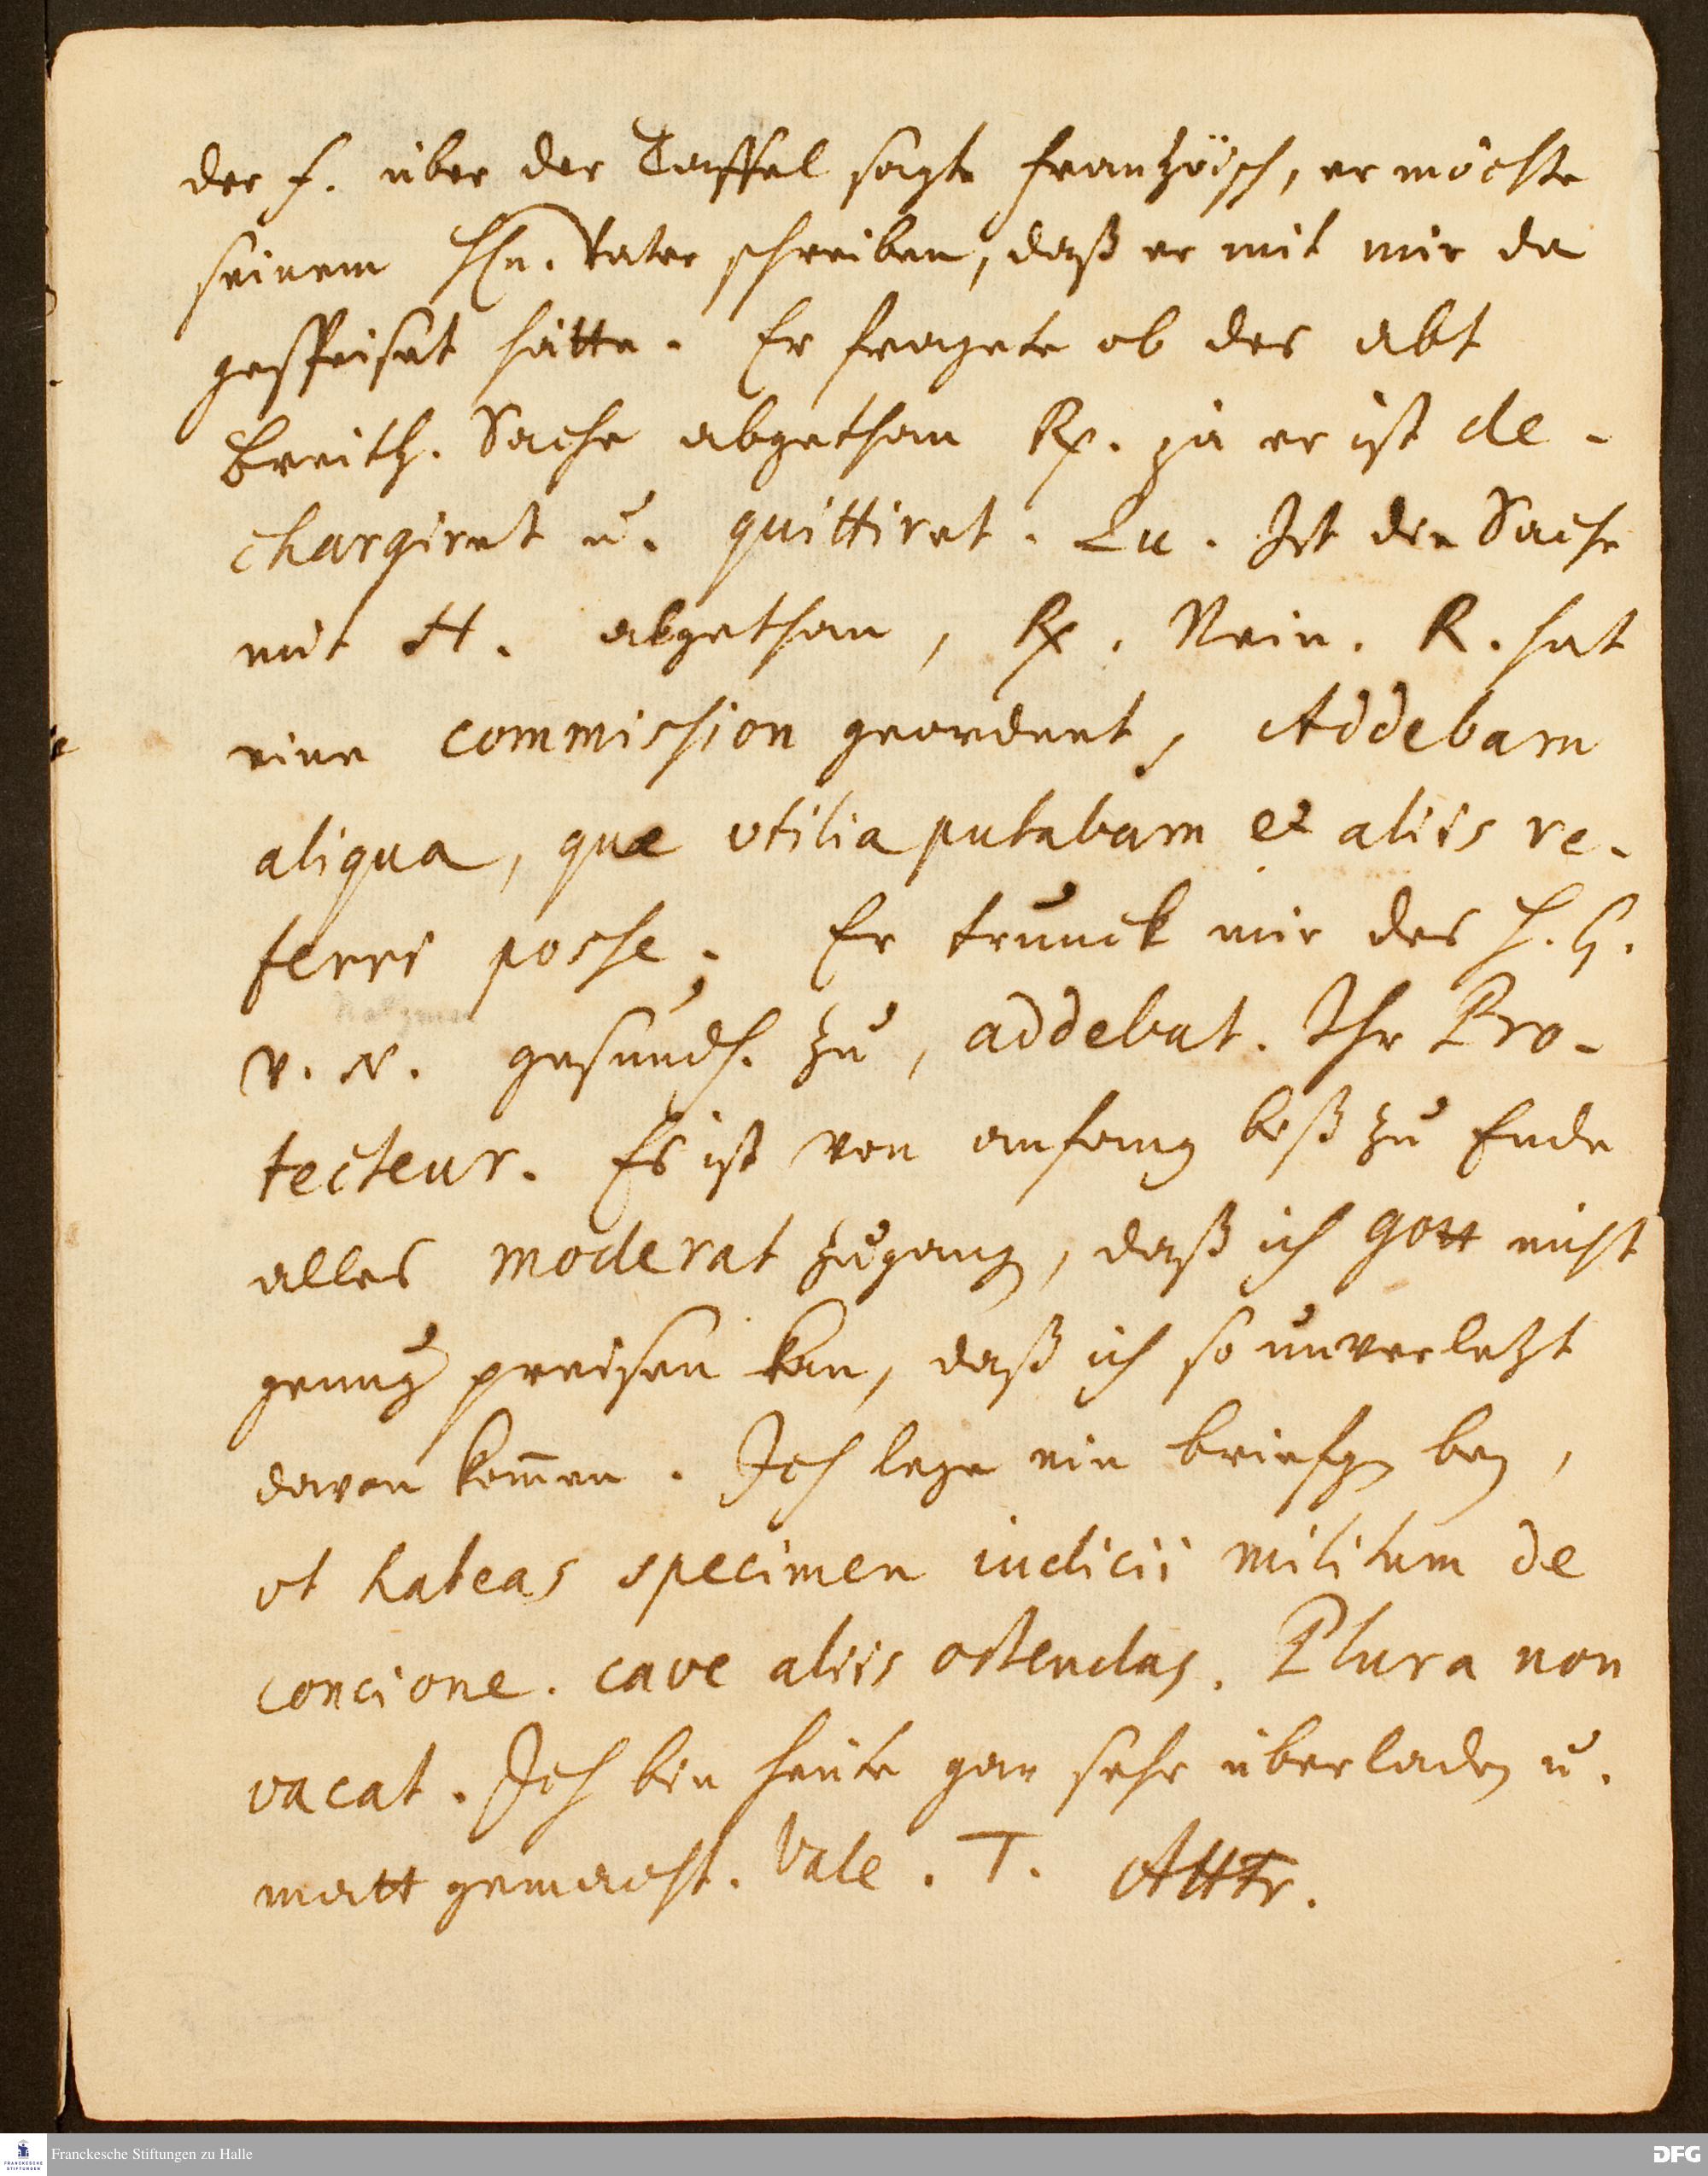 der f. über der Taffel sagte frantzöisch, er möchte
seinem Hn. Vater schreiben, daß er mit mir da
gespeiset hätte. Er fragete ob des Abt
Breith. Sache abgethan Rp. ja er ist de-
chargiret u. quittiret. Qu. Ist die Sache
mit H. abgethan, Rp. Nein. R. hat
eine commission geordnet, Addebam
aliqua, quæ vtilia putabam et aliis re-
ferri posse. Er trunck mir des H. G.
Natzmer
v. N. gesundh. zu, addebat. Ihr Pro-
tecteur. Es ist von anfang biß zu Ende
alles moderat zugang, daß ich Gott nicht
genug preisen kan, daß ich so unverletzt
davon kom̄en. Ich lege ein briefgen bey,
vt habeas specimen iudicii militum de
concione. cave aliis ostendas. Plura non
vacat. Ich bin heute gar sehr überladen u.
matt gemacht. Vale. T. AHFr.
Franckesche Stiftungen zu Halle
FRANCKESCHE STIFTUNGEN
DFG